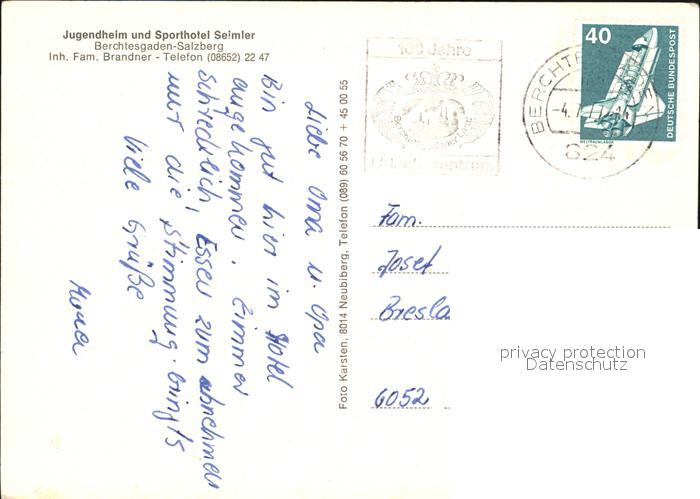 Jugendheim und Sporthotel Seimler
Berchtesgaden-Salzberg
Inh. Fam. Brandner - Telefon (08652) 22 47
Liebe Oma u. Opa
Bin gut hier im Hotel
angekommen. Zimmer
schrecklich, Essen zum abnehmen
nur die Stimmung bringts
Viele Grüße
Foto Karsten, 8014 Neubiberg, Telefon (089) 60 56 70 + 45 00 55
100 Jahre
BERCHT
824
40
DEUTSCHE BUNDESPOST
WELTRAUMLABOR
Fam.
Josef
Bresla
6052
privacy protection
Datenschutz